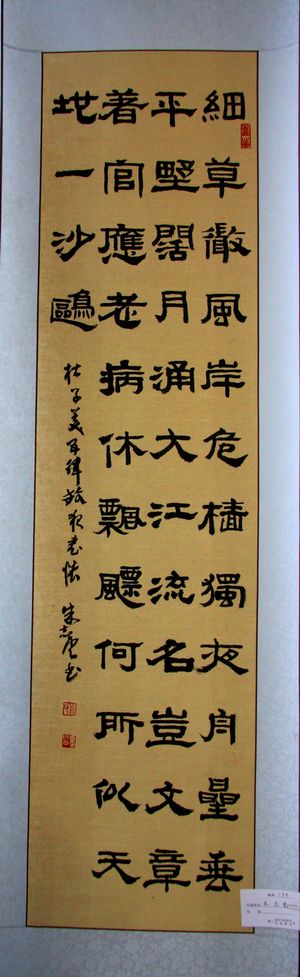 細草微風岸危檣獨夜舟星垂
平野闊月涌大江流名豈文章
著官應老病休飄飄何所似天
地一沙鷗
杜子美五律旅夜書懷 朱志書